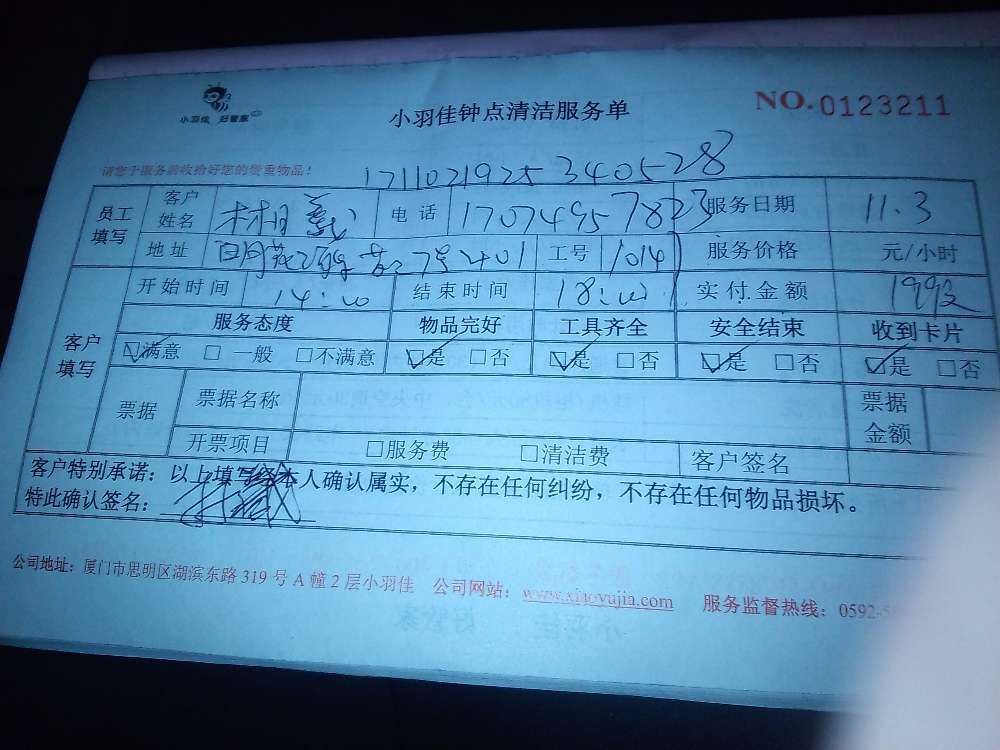 小羽佳 好管家
小羽佳钟点清洁服务单
NO.0123211
请您于服务前收拾好您的贵重物品！
1211021925340528
员工填写 客户姓名 林 电话 17074957823 服务日期 11.3
地址 7号2401 工号 1014 服务价格 元/小时
客户填写 开始时间 14:00 结束时间 18:00 实付金额
服务态度 物品完好 工具齐全 安全结束 收到卡片
☑满意 □一般 □不满意 ☑是 □否 ☑是 □否 ☑是 □否 ☑是 □否
票据 票据名称 票据金额
开票项目 □服务费 □清洁费 客户签名
客户特别承诺：以上填写经本人确认属实，不存在任何纠纷，不存在任何物品损坏。
特此确认签名：
公司地址：厦门市思明区湖滨东路 319 号 A 幢 2 层小羽佳 公司网站：www.xiaoyujia.com 服务监督热线：0592-5